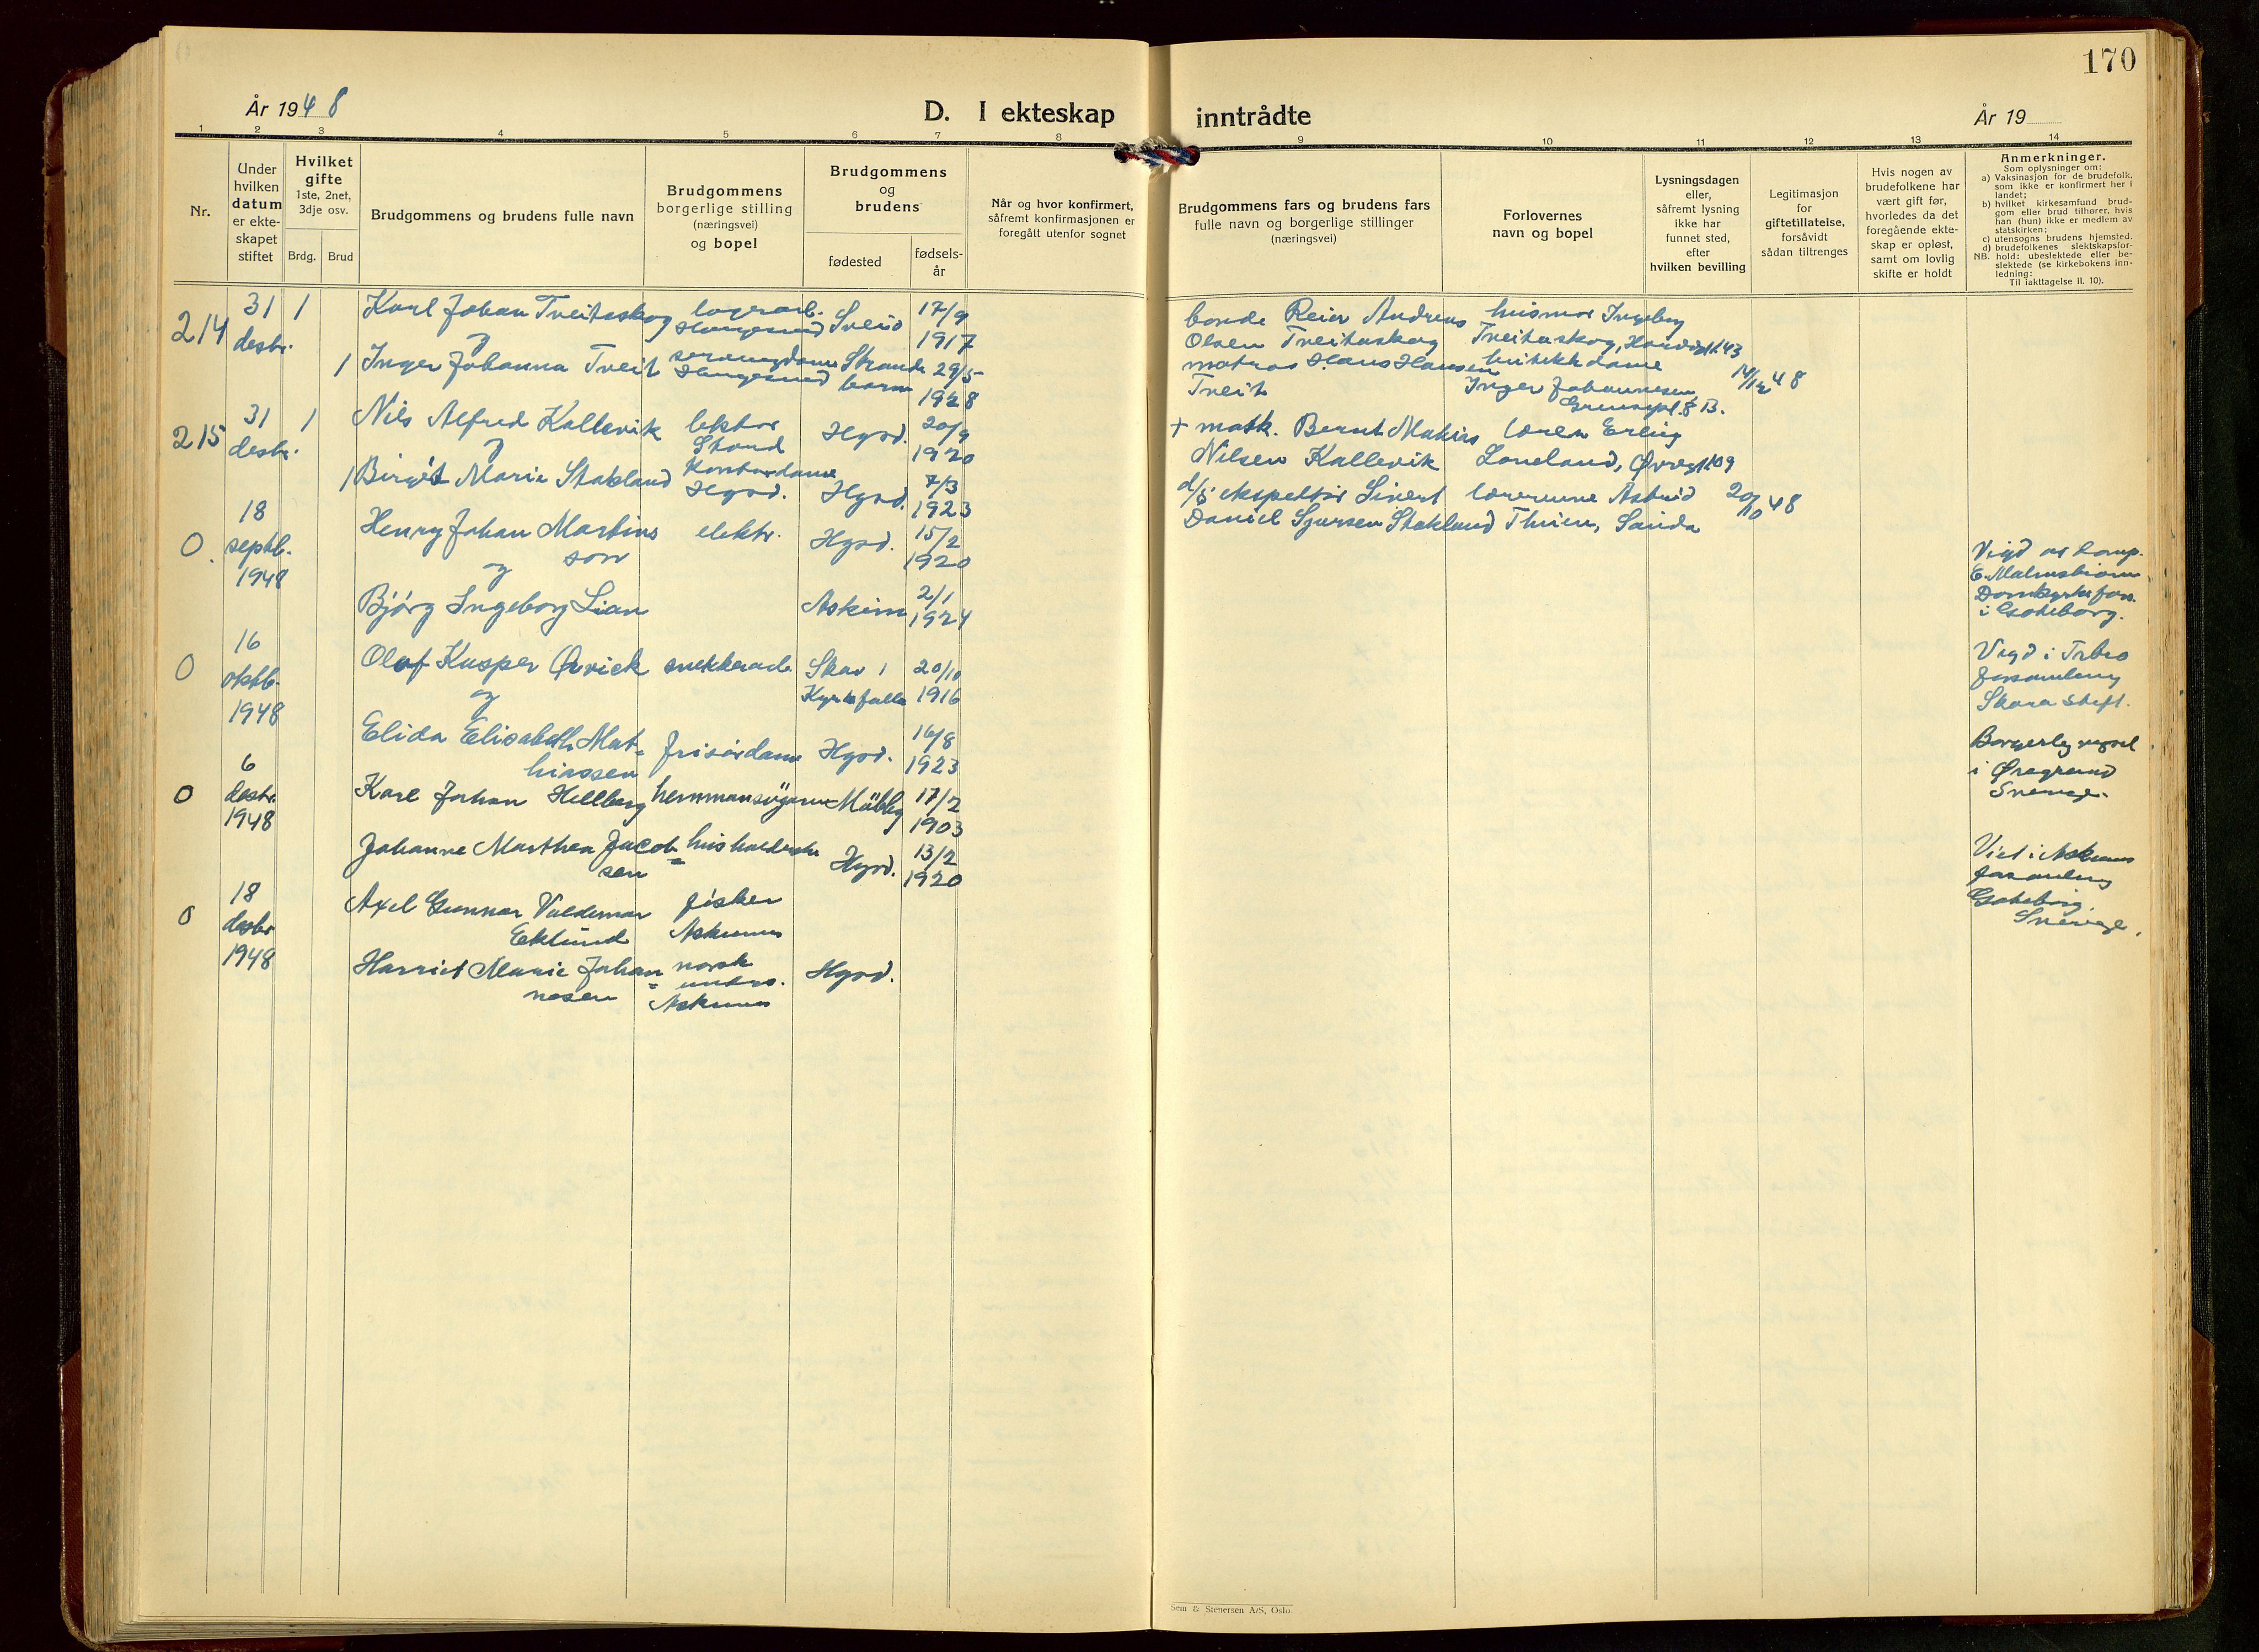 170
År 1948
D. I ekteskap inntrådte
År 19
1 2 3 4 5 6 7 8 9 10 11 12 13 14
Nr.
Under
hvilken
datum
er ekte-
skapet
stiftet
Hvilket
gifte
1ste, 2net,
3dje osv.
Brdg.
Brud
Brudgommens og brudens fulle navn
Brudgommens
borgerlige stilling
(næringsvei)
og bopel
Brudgommens
og
brudens
fødested
fødsels-
år
Når og hvor konfirmert,
såfremt konfirmasjonen er
foregått utenfor sognet
Brudgommens fars og brudens fars
fulle navn og borgerlige stillinger
(næringsvei)
Forlovernes
navn og bopel
Lysningsdagen
eller,
såfremt lysning
ikke har
funnet sted,
efter
hvilken bevilling
Legitimasjon
for
giftetillatelse,
forsåvidt
sådan tiltrenges
Hvis nogen av
brudefolkene har
vært gift før,
hvorledes da det
foregående ekte-
skap er opløst,
samt om lovlig
skifte er holdt
Anmerkninger.
Som oplysninger om:
a) Vaksinasjon for de brudefolk,
som ikke er konfirmert her i
landet;
b) hvilket kirkesamfund brud-
gom eller brud tilhører, hvis
han (hun) ikke er medlem av
statskirken;
c) utensogns brudens hjemsted.
d) brudefolkenes slektskapsfor-
NB. hold: ubeslektede eller be-
slektede (se kirkebokens inn-
ledning:
Til iakttagelse II. 10).
214
31
desbr.
1
Karl Johan Tveitaskog
og
lagerarb.
Haugesund
Sveio
17/9
1917
bonde Reier Andreas
Olsen Tveitaskog
husmor Ingeborg
Tveitaskog,
1 Inger Johanna Tveit
Haugesund
Strande
barm
29/5
1928
matros Hans Hansen
Tveit
butikkdame
Inger Johannesen
14/12 48
215
31
desbr.
1
Nils Alfred Kallevik
og
lektor
Stord
Hgsd.
20/9
1920
+ mask. Bernt Matias
Nilsen Kallevik
lærer Erling
1 Birgit Marie Stakland
Kontordame
Hgsd.
Hgsd.
7/3
1923
d/s ekspeditør Sivert
Daniel Sjursen Stakland
lærerinne Astrid
Thuen, Sauda
20/10 48
0
18
septb.
1948
Henry Johan Martins
son
og
elektr.
Hgsd.
15/2
1920
Bjørg Ingeborg Lian
Askim
2/1
1924
Vigd av komp.
E. Malmstrøm
Domkyrkoförs.
i Gøteborg.
0
16
oktb.
1948
Olof Kasper Qvick
og
snekkerarb.
20/10
1916
Elida Elisabeth Mat-
hiassen
frisørdame
Hgsd.
16/8
1923
forsamling
Skara stift.
0
6
desbr.
1948
Karl Johan Hellberg
hemmansägare
17/2
1903
Johanne Marthea Jacob=
sen
husholderske
Hgsd.
13/2
1920
Borgerlig vigsel
i Øregrund
Sverige.
0
18
desbr
1948
Axel Gunnar Valdemar
Eklund
fisker
Askum
Harriet Marie Johan=
nesen
norsk
unders.
Askum
Hgsd.
Viet i Askums
forsamling
Gøteborg,
Sverige.
Sem & Stenersen A/S, Oslo.